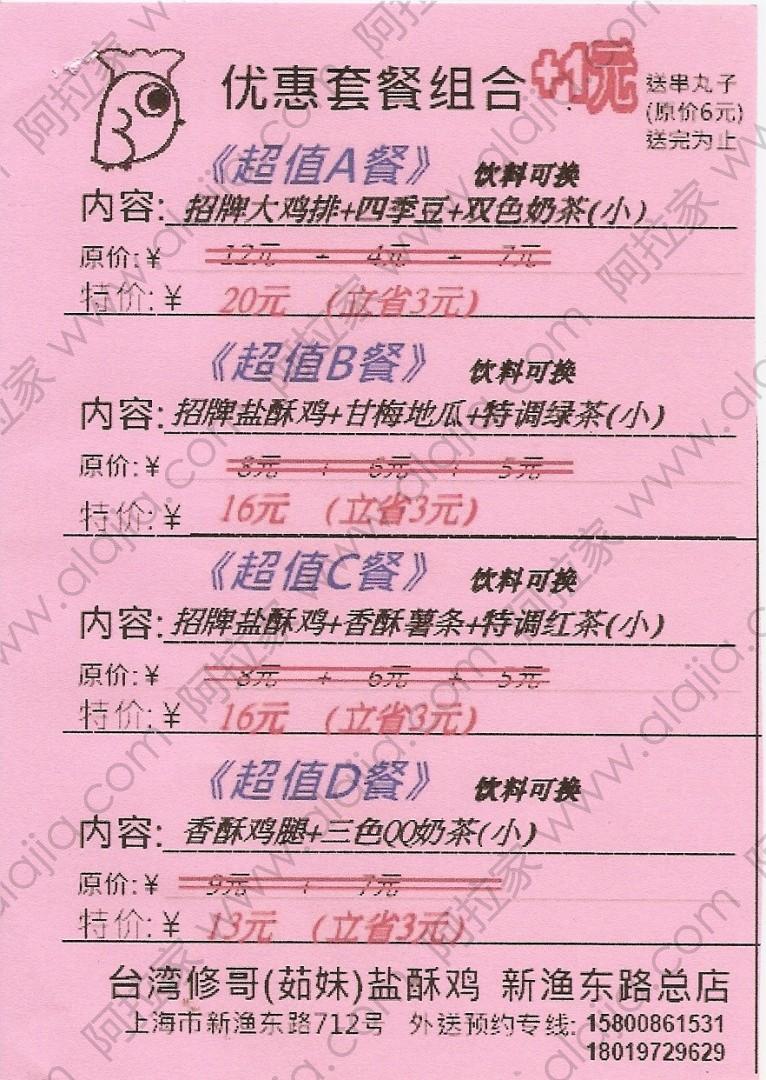 优惠套餐组合+1元
送串丸子
(原价6元)
送完为止
《超值A餐》 饮料可换
内容: 招牌大鸡排+四季豆+双色奶茶(小)
原价:¥ 12元 + 4元 + 7元
特价:¥ 20元 (立省3元)
《超值B餐》 饮料可换
内容: 招牌盐酥鸡+甘梅地瓜+特调绿茶(小)
原价:¥ 8元 + 6元 + 5元
特价:¥ 16元 (立省3元)
《超值C餐》 饮料可换
内容: 招牌盐酥鸡+香酥薯条+特调红茶(小)
原价:¥ 8元 + 6元 + 5元
特价:¥ 16元 (立省3元)
《超值D餐》 饮料可换
内容: 香酥鸡腿+三色QQ奶茶(小)
原价:¥ 9元 + 7元
特价:¥ 13元 (立省3元)
台湾修哥(茹妹)盐酥鸡 新渔东路总店
上海市新渔东路712号 外送预约专线: 15800861531
18019729629
阿拉家 www.alajia.com